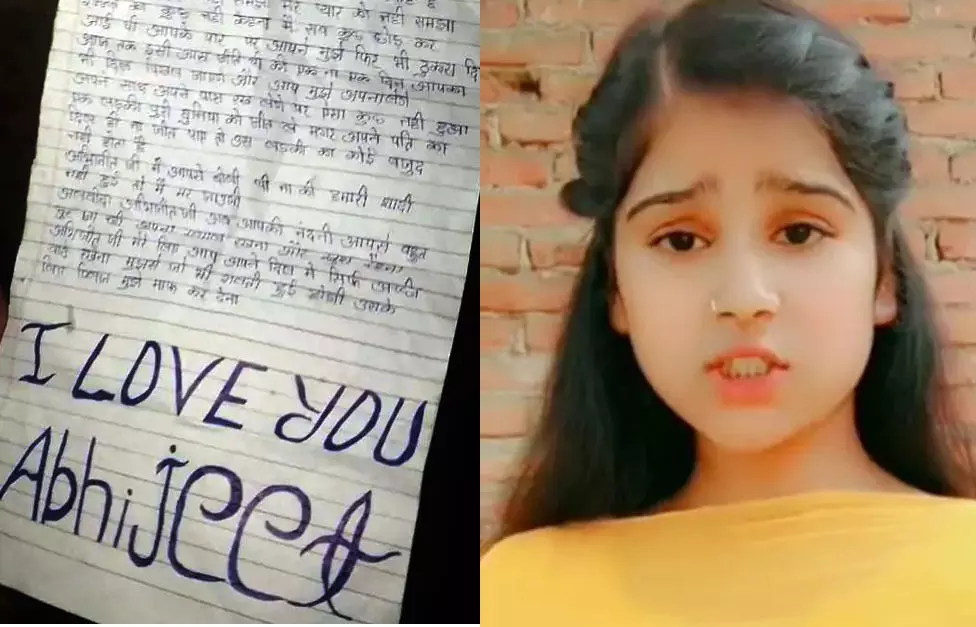 का कुछ नहीं कहना मैं सब कुछ छोड़ कर
आई थी आपके पास पर आपने मुझे फिर भी ठुकरा दि
आज तक इसी आस जीति थी की एक ना एक दिन आपका
भी दिल पिघल जाएगे और आप मुझे अपनालेगे
अपने साथ अपने पास रख लेंगे पर ऐसा कुछ नहीं हुआ
एक लड़की पुरी दुनिया को जीत ले मगर अपने पति का
दिल ही ना जीत पाए तो उस लड़की का कोई वाजुद
नहीं होता है
अभिजीत जी मैं आपने बोली थी ना की हमारी शादी
नहीं हुई तो मैं मर जाउगी
अलवीदा अभिजीत जी अब आपकी नंदनी आपसे बहुत
दूर जा रही अपना ख्याल रखना और खुश रहना
अभिजीत जी मेरे लिए आप अपने दिल में सिर्फ अच्छी
यादे रखना मुझसे जो भी गलती हुई होगी उसके
लिए प्लिज मुझे माफ कर देना
I LOVE YOU
Abhijeet